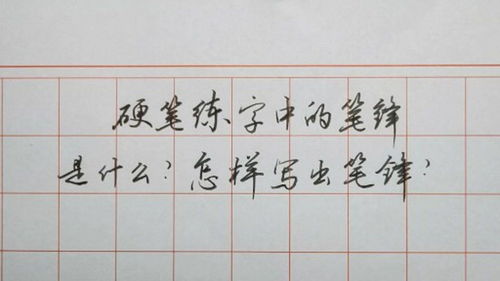 硬笔练字中的笔锋
是什么？怎样写出笔锋？